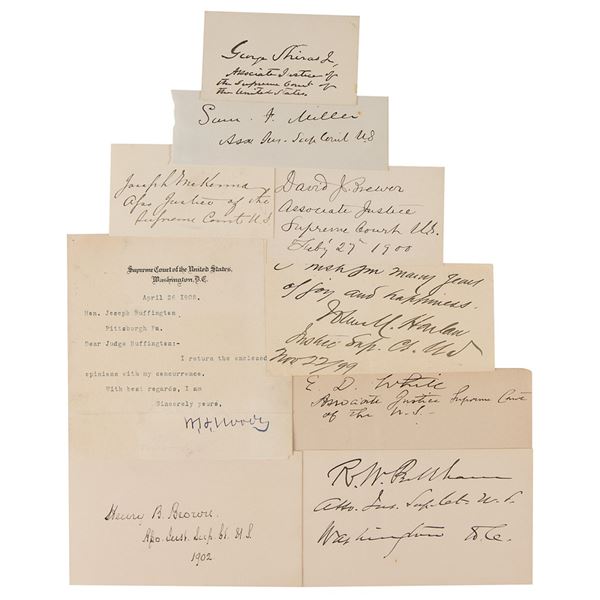 George Shiras Jr,
Associate Justice of
the Supreme Court of
the United States.
Sam. F. Miller
Asso Jus. Sup Court U.S
Joseph McKenna
Asso Justice of the
Supreme Court U.S.
David J. Brewer
Associate Justice
Supreme Court U.S.
Feb'y 27th 1900
Supreme Court of the United States,
Washington, D.C.
April 26 1908.
Hon. Joseph Buffington
Pittsburgh Pa.
Dear Judge Buffington:-
I return the enclosed
opinions with my concurrence.
With best regards, I am
Sincerely yours,
W. H. Moody
I wish you many years
of joy and happiness.
John M. Harlan
Justice Sup. Ct. U.S
Nov 22/99
E. D. White
Associate Justice Supreme Court
of the U.S.
Henry B. Brown
Asso. Just. Sup Ct. U.S.
1902.
R. W. Peckham
Asso. Jus. Sup. Ct. U.S.
Washington D.C.